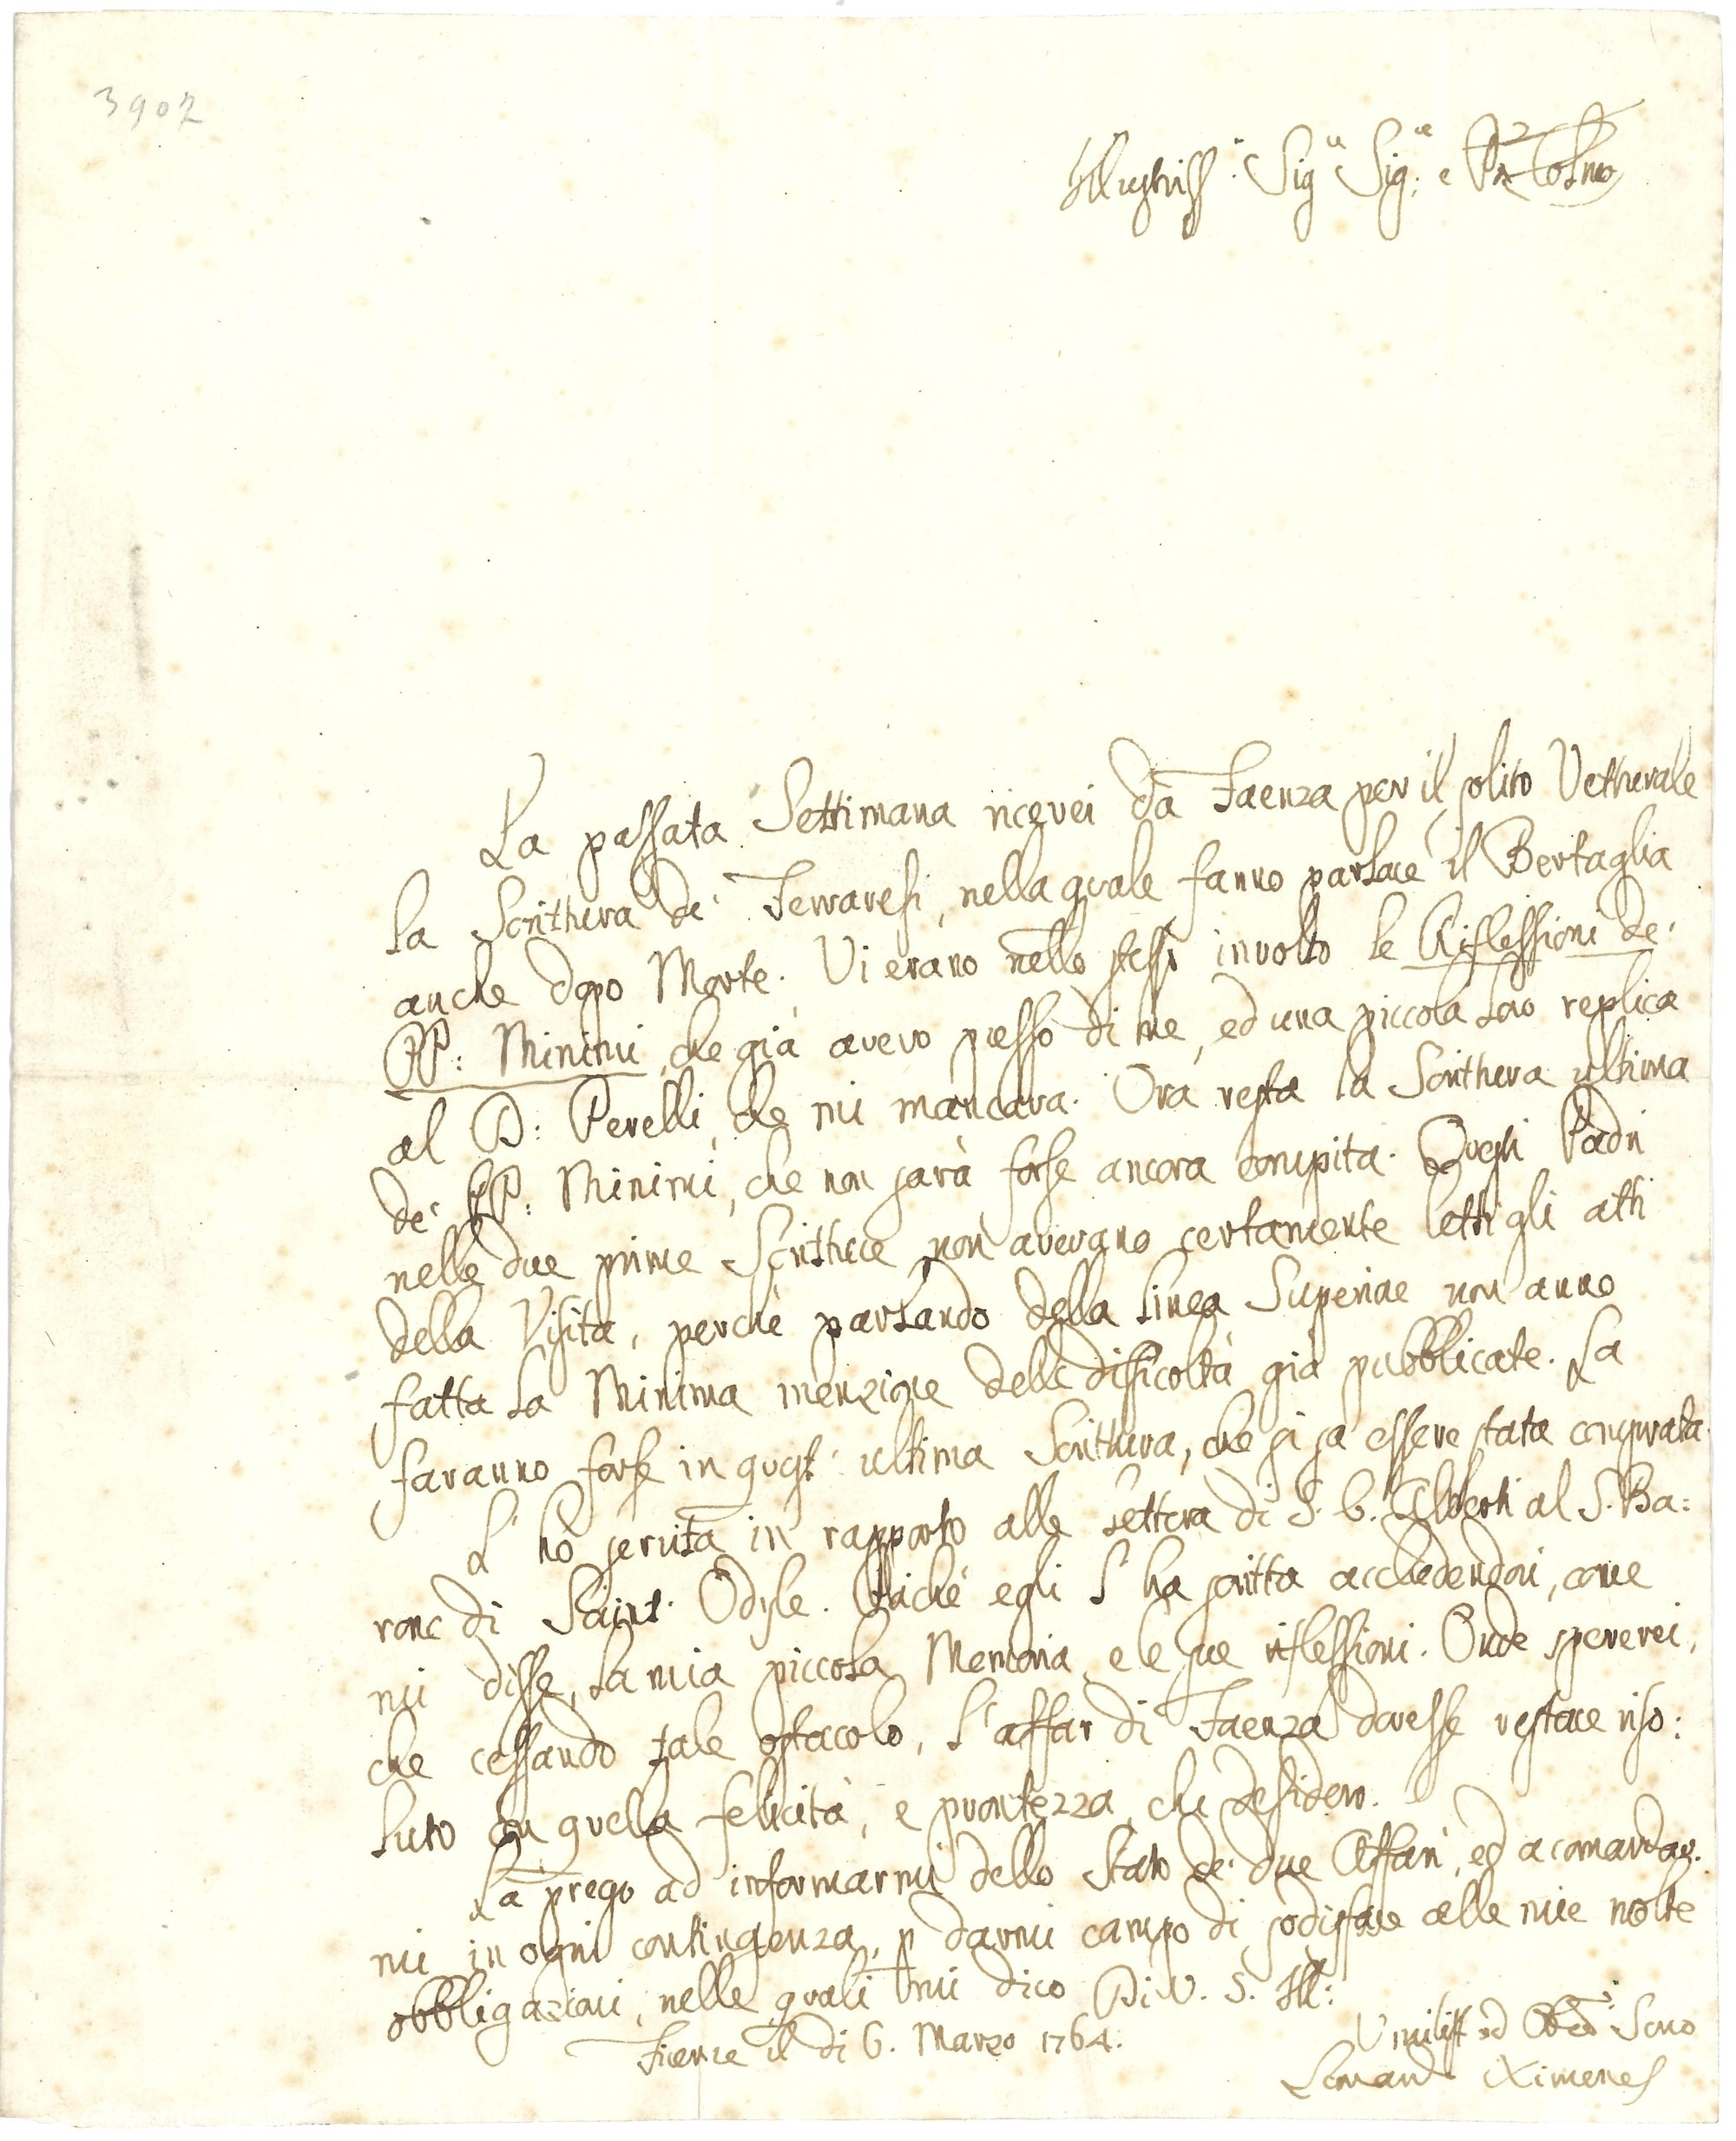 3902
Illustriss: Sig.re Sig.re e P.ne Col.mo
La passata Settimana ricevei da Faenza per il solito Vetturale
la Scrittura de' Ferraresi, nella quale fanno parlare il Bertaglia
anche dopo Morte. Vi erano nello stesso involto le Riflessioni de'
PP: Minimi, che già avevo presso di me, ed una piccola loro replica
al D: Perelli, che mi mancava. Ora resta la Scrittura ultima
de' PP: Minimi, che non sarà forse ancora compita. Quegli Padri
nelle due prime Scritture non avevano certamente letti gli atti
della Visita, perchè parlando della linea Superiore non anno
fatta la Minima menzione delle difficoltà già pubblicate. La
faranno forse in quest' ultima Scrittura, che si sa essere stata comprata.
L' hò servita in rapporto alle lettera di S. C. Alberti al S. Ba:
rone di Saint Odyle. Poichè egli l' ha scritta accludendovi, come
mi disse, la mia piccola Memoria, e le sue riflessioni. Onde spererei,
che cessando tale ostacolo, l'affar di Faenza dovesse restare riso:
luto con quella felicità, e prontezza, che desidero.
La prego ad informarmi dello Stato de' due Affari, ed a comandar:
mi in ogni contingenza, p darmi campo di sodisfare alle mie molte
obbligazioni, nelle quali mi dico Di V. S. Ill:
Firenze il di 6. Marzo 1764.
Umiliss ed Obb.mo Servo
Leonardo Ximenes